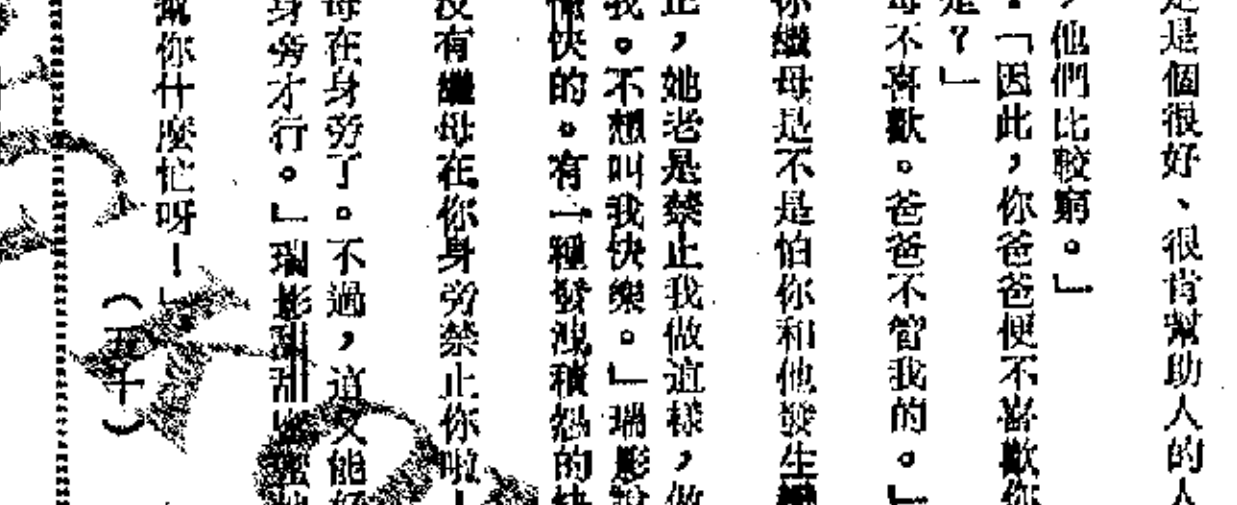 是個很好、很肯幫助人的人
，他們比較窮。」
。「因此，你爸爸便不喜歡你
是？」
母不喜歡。爸爸不管我的。」
你繼母是不是怕你和他發生
止，她老是禁止我做這樣，做
我。不想叫我快樂。」瑞影說
愉快的。有一種發洩積怨的快
沒有繼母在你身旁禁止你啦！
母在身旁了。不過，這又能
身旁才行。」瑞影甜甜蜜蜜地
幫你什麼忙呀！」（五十）